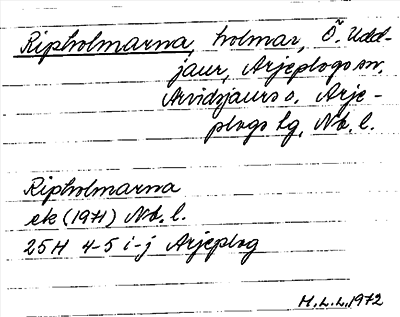 Ripholmarna, holmar, Ö. Udd-
jaur, Arjeplogs sn,
Arvidsjaurs o. Arje-
plogs tg, Nb. l.
Ripholmarna
ek (1971) Nb. l.
25H 4-5 i-j Arjeplog
H.L.L. 1972